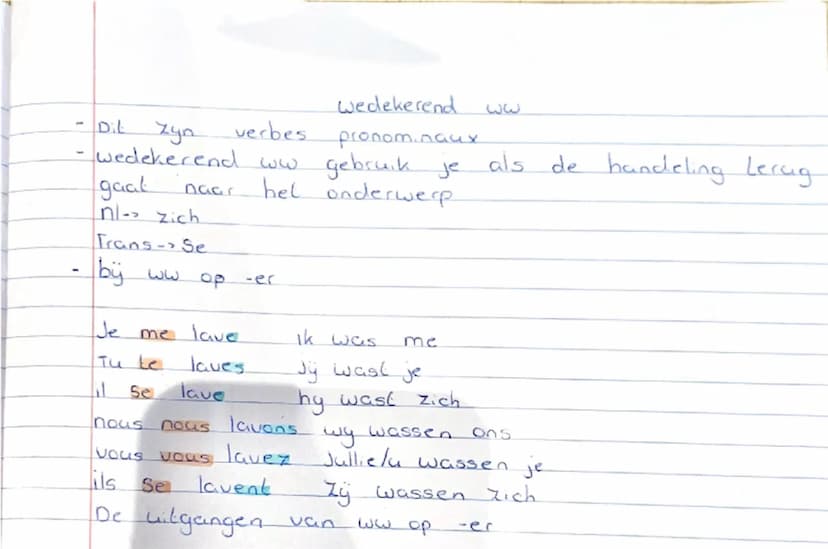 wedekerend ww
- Dit zyn verbes pronominaux
- wedekerend ww gebruik je als de handeling terug
gaat naar het onderwerp
nl-> zich
Frans-> Se
- bij ww op -er
Je me lave ik was me
Tu te laves Jij wast je
il se lave hy wast zich
nous nous lavons wy wassen ons
vous vous lavez Jullie/u wassen je
ils se lavent Zij wassen zich
De uitgangen van ww op -er